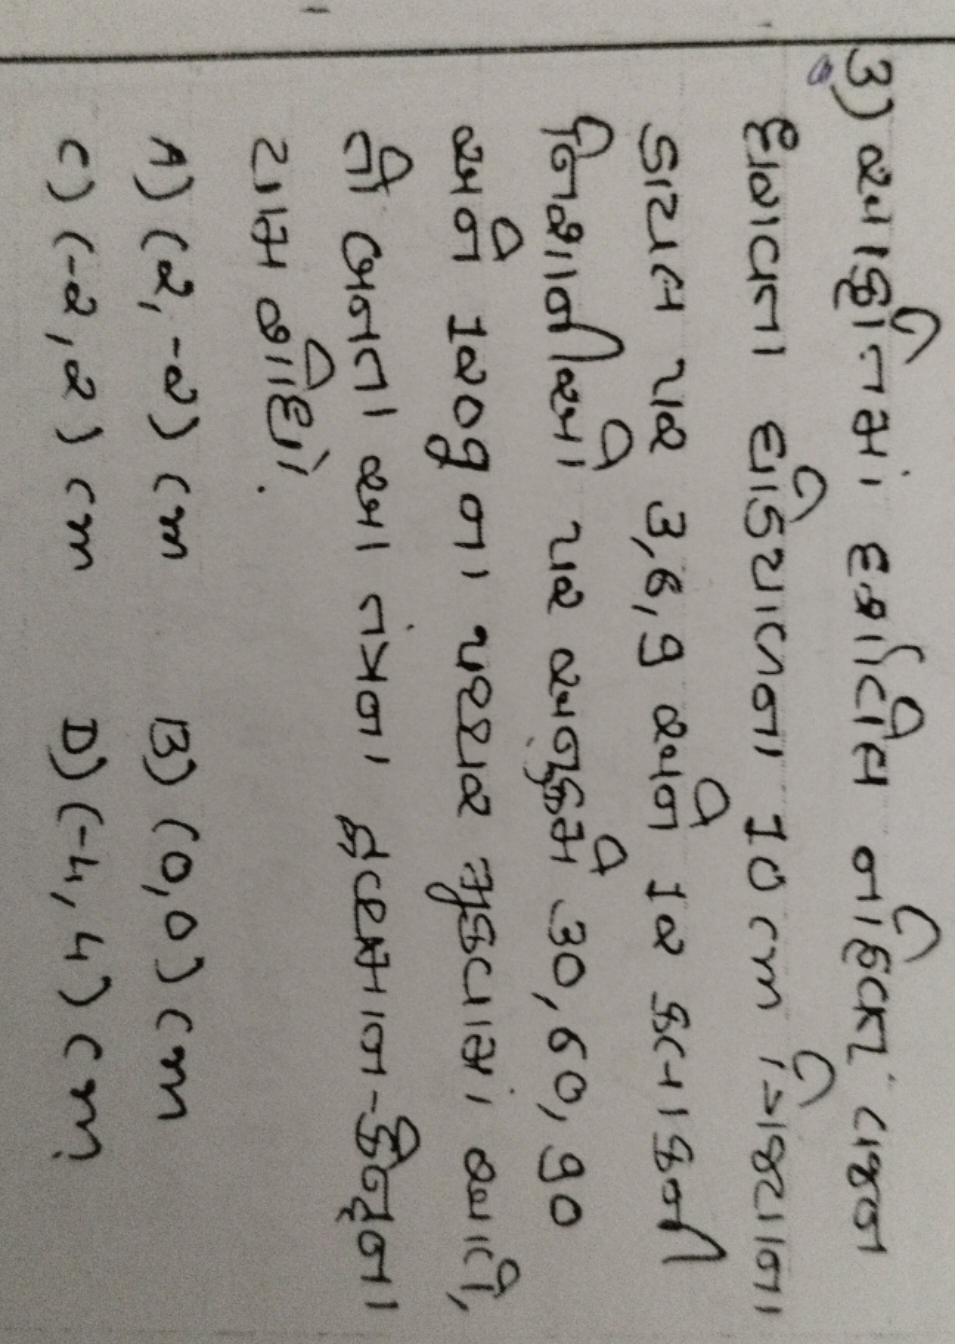 3) આકૃતિમાં દર્શાવેલ નહિવત્ વજન
ધરાવતા ઘડિયાળના 10 cm ત્રિજ્યાના
ડાયલ પર 3,6,9 અને 12 કલાકની
નિશાનીઓ પર અનુક્રમે 30,60,90
અને 120g ના પથ્થર મુકવામાં આવે,
તો બનતા આ તંત્રના દ્રવ્યમાન-કેન્દ્રના
યામ શોધો.
A) (2,-2) cm B) (0,0) cm
C) (-2,2) cm D) (-4,4) cm